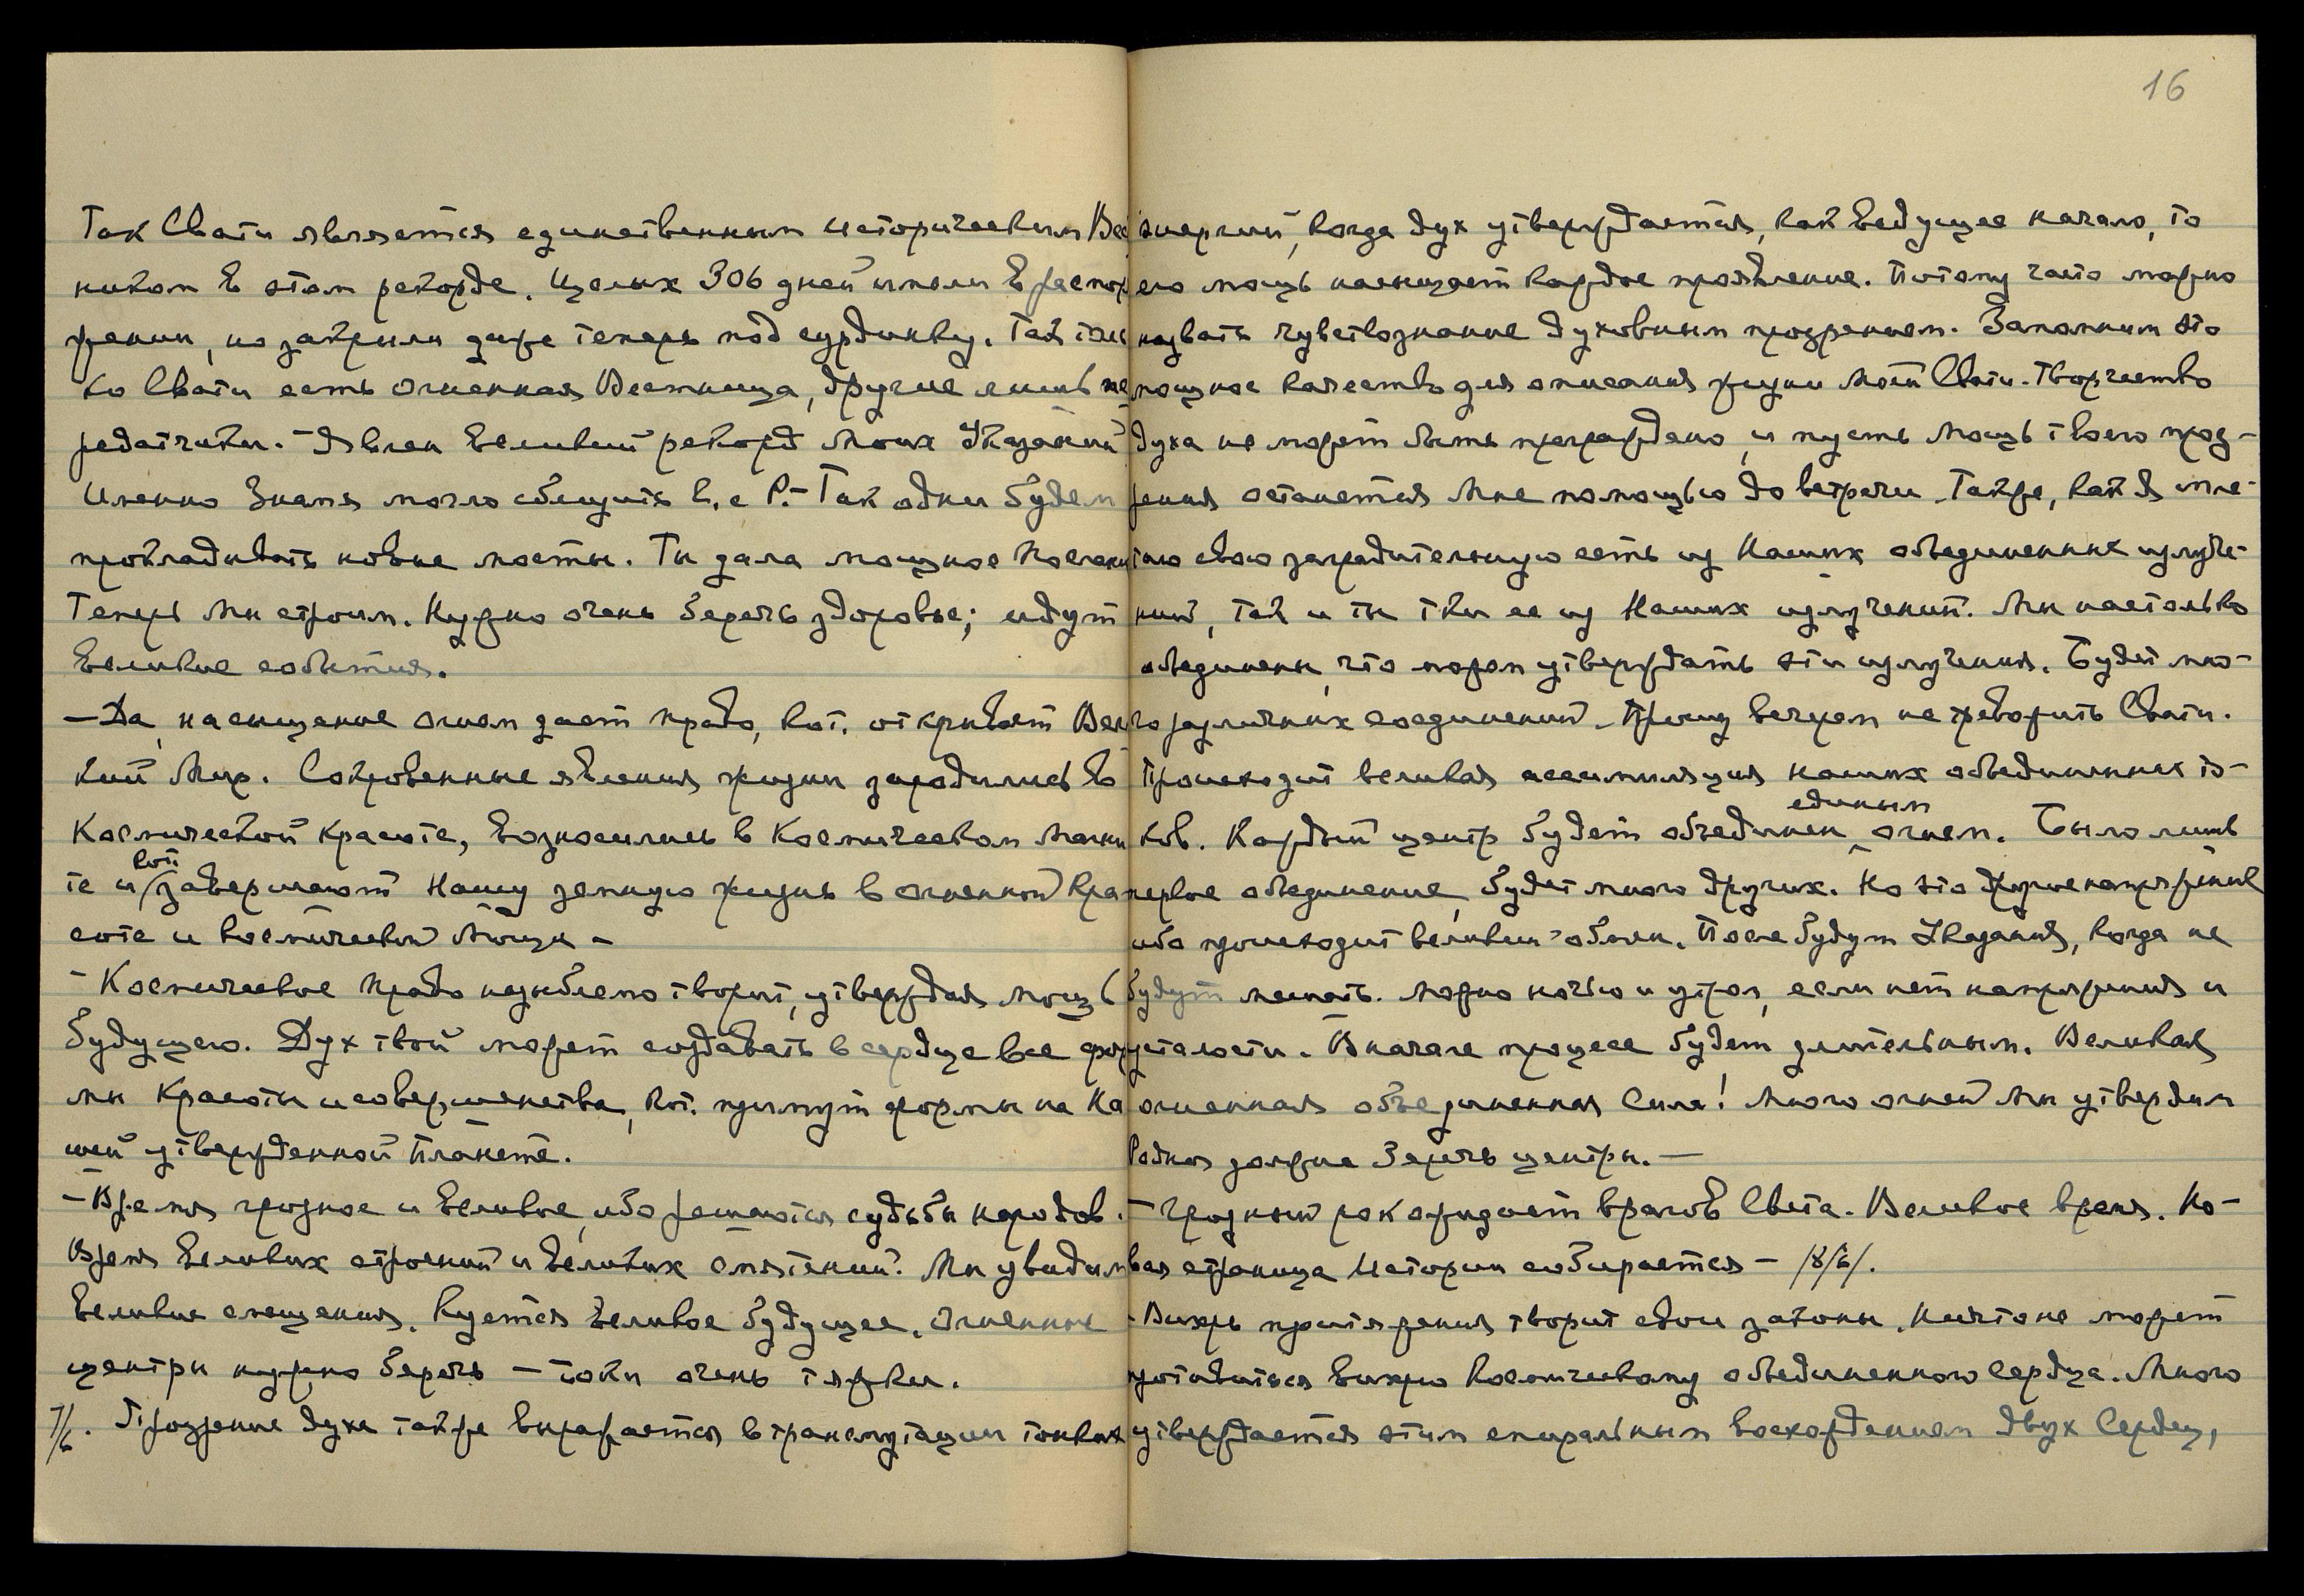 Так Свати является единственным историческим Вест
ником в этом рекорде. Целых 306 дней имели в распоря
жении, но закрыли даже теперь под сурдинку. Так толь
ко Свати есть огненная Вестница, другие лишь пе
редатчики. – Явлен великий рекорд Моих Указаний
Именно Знамя могло сблизить В. с Р. – Так одни будем
прокладывать новые мосты. Ты дала мощное Послание
Теперь Мы строим. Нужно очень беречь здоровье; идут
великие события.
– Да, насыщение огнем дает право, кот. открывает Вели
кий Мир. Сокровенные явления жизни зародились в
Космической Красоте, возносились в Космическом Магни
кот.
те и завершают Нашу земную жизнь в огненной Кра
соте и космической Мощи –
– Космическое Право незыблемо творит, утверждая мощь
будущего. Дух твой может создавать в сердце все фор
мы Красоты и совершенства, кот. примут формы на На
шей утвержденной Планете.
– Время грозное и великое, ибо решаются судьбы народов.
Время великих строений и великих смятений. Мы увидим
великие смещения. Куется великое будущее. Огненные
центры нужно беречь – токи очень тяжки.
7/6. Прозрение духа также выражается в трансмутации тонких
16
энергий, когда дух утверждается, как ведущее начало, то
его мощь насыщает каждое проявление. Потому часто можно
назвать чувствознание духовным прозрением. Запомним это
мощное качество для описания жизни Моей Свати. Творчество
духа не может быть преграждено, и пусть Мощь твоего прозре-
ния останется Мне помощью до встречи. Также, как Я пле-
таю свою заградительную сеть из Наших объединенных излуче-
ний, так и ты тки ее из Наших излучений. Мы настолько
объединены, что можем утверждать эти излучения. Будет мно-
го различных соединений. Прошу вечером не тревожить Свати.
Происходит великая ассимиляция наших объединенных то-
единым
ков. Каждый центр будет объединен огнем. Было лишь
первое объединение, будет много других. Но это напряжение
ибо происходит великий обмен. После будут Указания, когда не
будут мешать. Можно ночью и утром, если нет напряжения и
усталости. Вначале процесс будет длительным. Великая
огненная объединенная Сила! Много огней Мы утвердим
Родная должна беречь центры. –
– Грозный рок ожидает врагов Света. Великое время. Но-
вая страница Истории собирается – /8/6/.
– Вихрь притяжения творит свои законы. Ничто не может
противиться вихрю Космическому объединенного Сердца. Много
утверждается этим спиральным восхождением двух Сердец,